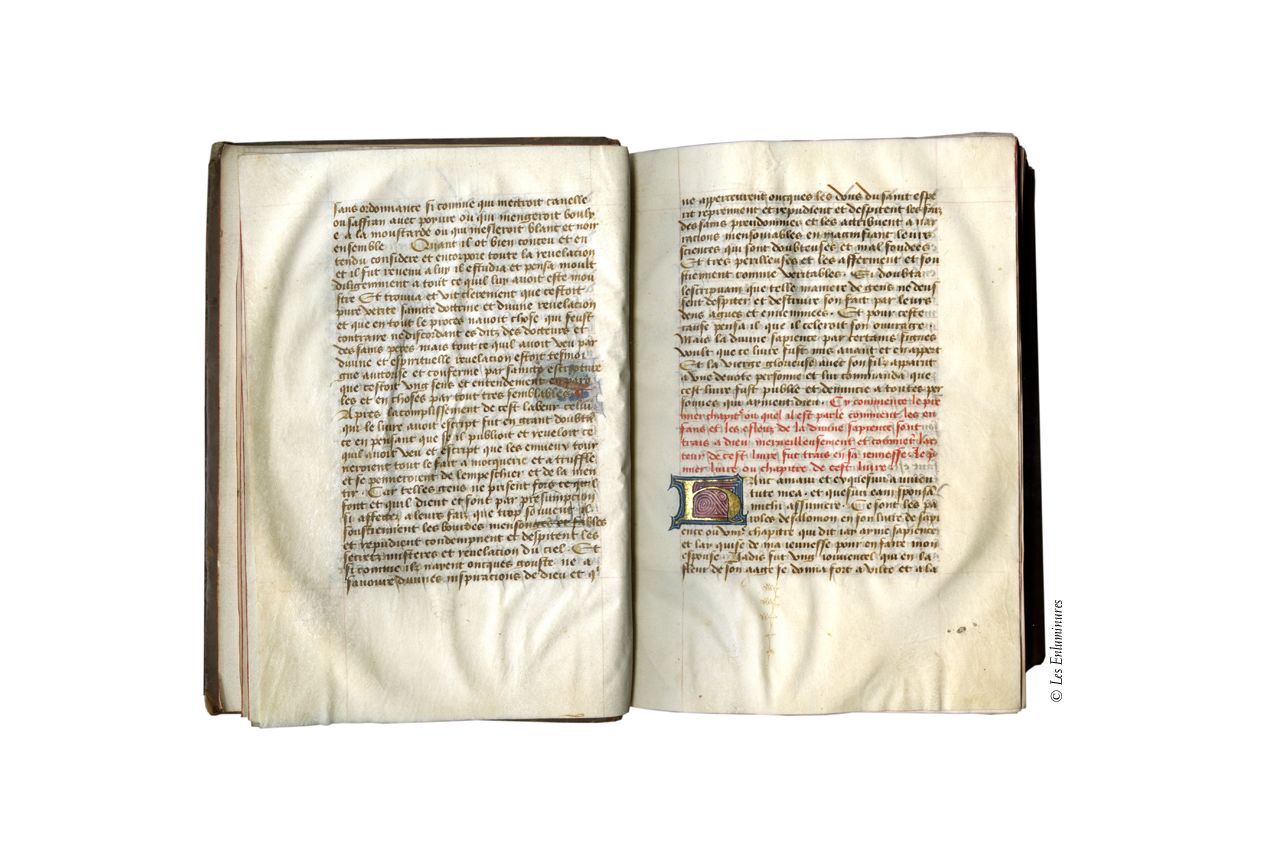 sans ordonnance si comme qui mectroit canelle
ou saffran avec poivre ou qui mengeroit bouly
e a la moustarde ou qui mesleroit blanc et noir
ensemble Quant il ot bien conceu et en
tendu considere et encorpore toute la revelacion
et il fut revenu a luy il estudia et pensa moult
diligemment a tout ce quil luy avoit este mon
stre Et trouva et vit clerement que cestoit
pure verite sainte doctrine et divine revelacion
et que en tout le proces navoit chose qui feust
contraire ne discordant es ditz des docteurs et
des sains peres mais tout ce quil avoit veu par
divine et espirituelle revelacion estoit tesmoi
gne auctorise et conferme par sainte escripture
que cestoit ung sens et entendement en paro
les et en choses par tout tres semblables
Apres lacomplissement de cest labeur celui
qui le livre avoit escript fut en grant doubte
ce en pensant que se il publioit et reveloit ce
quil avoit veu et escript que les envieux tour
neroient tout le fait a mocquerie et a truffle
et se penneroient de lempeschier et de la men
tir Car telles gens ne prisent fors ce quil
font et quil dient et sont par presumpcion
si affectez a leurs faiz que trop souvent ilz
soustiennent les bourdes mensonges et fables
et repudient condempnent et despitent les
secretz misteres et revelacion du ciel Et
si comme ilz nayent oncques gouste ne a
savoure divines inspiracions de dieu et q
ne apperceurent oncques les dons du saint espe
rit reprennent et repudient et despitent les faiz
des sains preudommes et les atribuent a nar
racions mensongables en magnifiant leurs
sciences qui sont doubteuses et mal fondees
Et tres perilleuses et les afferment et sou
stiennent comme veritables Si doubta
lescripvain que telle maniere de gens ne deus
sent despiter et destruire son fait par leurs
dens agues et envenimees Et pour ceste
cause pensa il que il celeroit son ouvrage
Mais la divine sapience par certains signes
voult que ce livre fust mis avant en appert
Et la vierge glorieuse avec son filz apparut
a une devote personne et lui commanda que
cest livre fust publie et denuncie a toutes per
sonnes qui ayment dieu Cy commence le pre
mier chapitre ou quel il est parle comment les en
fans et les esleuz de la divine sapience sont
trais a dieu merveilleusement et comment lac
teur de cest livre fut trais en sa jeunesse le p
mier livre ou chapitre de cest livre
Hanc amavi et exquisivi a iuven
tute mea et quesivi eam sponsam
michi assumere Ce sont les pa
roles de salomon en son livre de sapi
ence ou viiie chapitre qui dit jay ayme sapience
et lay quise de ma jeunesse pour en faire mon
espouse Jadis fut ung jouvencel qui en la
fleur de son aage se donna fort a vilte et a la
© Les Enluminures